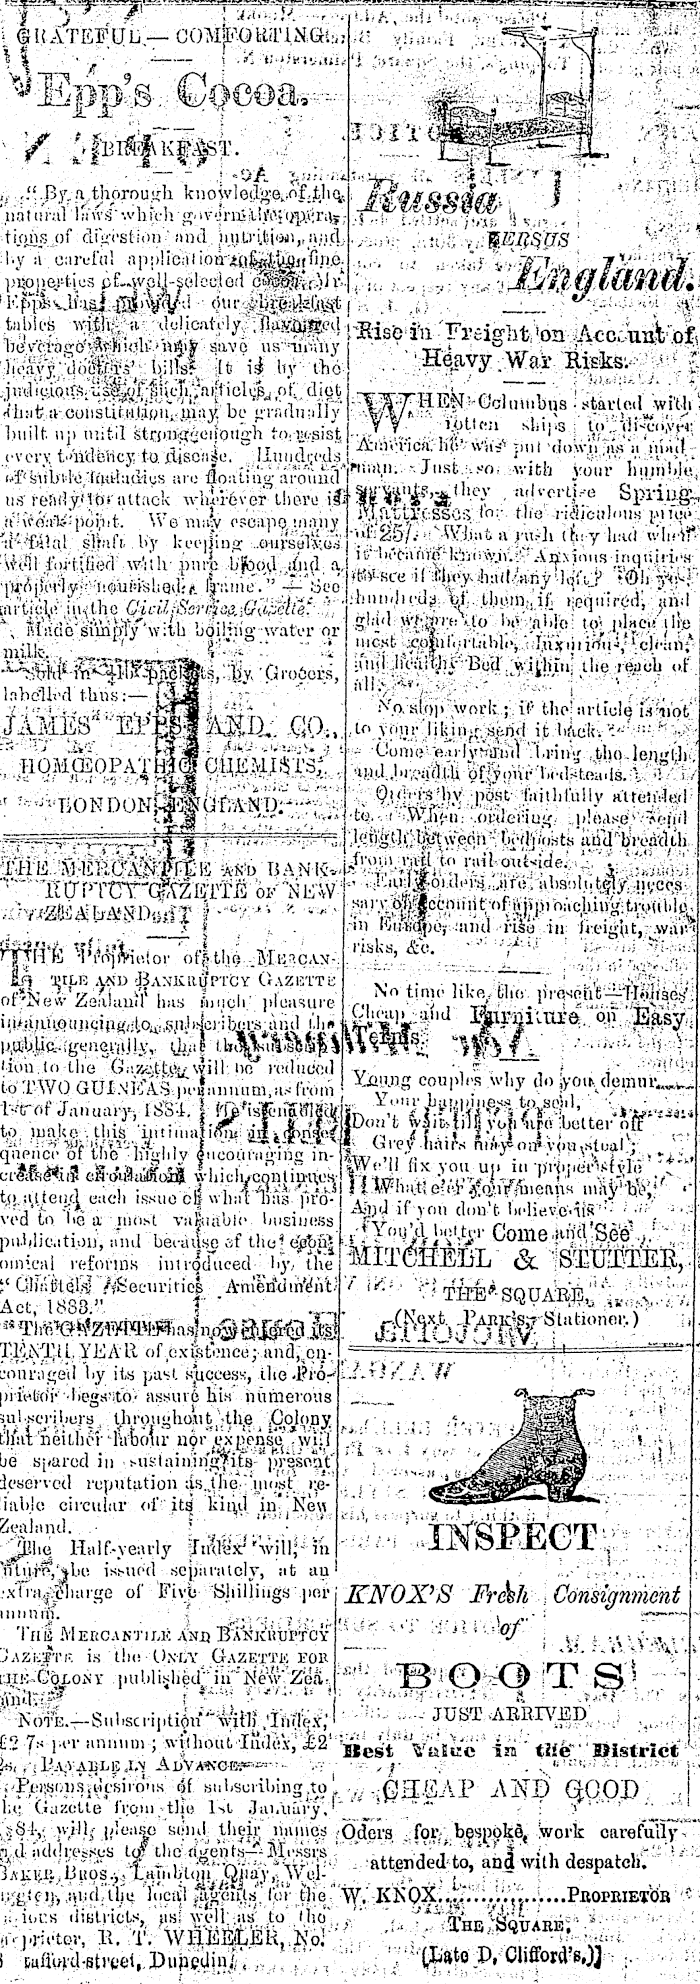 GRATEFUL—COMFORTING.
Epp's Cocoa.
BREAKFAST.
"By a thorough knowledge of the
natural laws which govern the opera-
tions of digestion and nutrition, and
by a careful application of the fine
properties of well-selected cocoa, Mr
Epps has provided our breakfast
tables with a delicately flavoured
beverage which may save us many
heavy doctors' bills. It is by the
judicious use of such articles of diet
that a constitution may be gradually
built up until strong enough to resist
every tendency to disease. Hundreds
of subtle maladies are floating around
us ready to attack wherever there is
a weak point. We may escape many
a fatal shaft by keeping ourselves
well fortified with pure blood and a
properly nourished frame."—See
article in the Civil Service Gazette.
Made simply with boiling water or
milk.
Sold in packets, by Grocers,
labelled thus:—
JAMES EPPS AND CO.,
HOMŒOPATHIC CHEMISTS,
LONDON ENGLAND.
THE MERCANTILE AND BANK-
RUPTCY GAZETTE OF NEW
ZEALAND.
THE Proprietor of the MERCAN-
TILE AND BANKRUPTCY GAZETTE
of New Zealand has much pleasure
in announcing to subscribers and the
public generally, that the subscrip-
tion to the Gazette will be reduced
to TWO GUINEAS per annum, as from
1st of January, 1884. He is enabled
to make this intimation in conse-
quence of the highly encouraging in-
crease in circulation which continues
to attend each issue of what has pro-
ved to be a most valuable business
publication, and because of the econ-
omical reforms introduced by the
"Chattels Securities Amendment
Act, 1883."
The GAZETTE has now entered its
TENTH YEAR of existence; and, en-
couraged by its past success, the Pro-
prietor begs to assure his numerous
subscribers throughout the Colony
that neither labour nor expense will
be spared in sustaining its present
deserved reputation as the most re-
liable circular of its kind in New
Zealand.
The Half-yearly Index will, in
future, be issued separately, at an
extra charge of Five Shillings per
annum.
THE MERCANTILE AND BANKRUPTCY
GAZETTE is the ONLY GAZETTE FOR
THE COLONY published in New Zea-
land.
NOTE.—Subscription with Index,
£2 7s per annum; without Index, £2
2s. PAYABLE IN ADVANCE.
Persons desirous of subscribing to
the Gazette from the 1st January,
84, will please send their names
and addresses to the agents—Messrs
BAKER BROS., Lambton Quay, Wel-
ington, and the local agents for the
various districts, as well as to the
proprietor, R. T. WHEELER, No.
Stafford-street, Dunedin.
Russia
VERSUS
England.
Rise in Freight on Account of
Heavy War Risks.
WHEN Columbus started with
rotten ships to discover
America he was put down as a mad
man. Just so with your humble
servants, they advertise Spring
Mattresses for the ridiculous price
of 25/. What a rush they had when
it became known. Anxious inquiries
to see if they had any left? Oh yes
hundreds of them if required, and
glad we are to be able to place the
most comfortable, luxurious, clean,
and healthy Bed within the reach of
all.
No slop work; if the article is not
to your liking send it back.
Come early and bring the length
and breadth of your bedsteads.
Orders by post faithfully attended
to. When ordering please send
length between bedposts and breadth
from rail to rail outside.
Early orders are absolutely neces-
sary on account of approaching trouble
in Europe, and rise in freight, war
risks, &c.
No time like the present—Houses
Cheap and Furniture on Easy
Terms.
Young couples why do you demur
Your happiness to seal,
Don't wait till you are better off
Grey hairs may on you steal;
We'll fix you up in proper style
What e'er your means may be,
And if you don't believe us
You'd better Come and See
MITCHELL & STUTTER,
THE SQUARE,
(Next PARK'S, Stationer.)
INSPECT
KNOX'S Fresh Consignment
of
BOOTS
JUST ARRIVED
Best Value in the District
CHEAP AND GOOD
Oders for bespoke work carefully
attended to, and with despatch.
W. KNOX..................PROPRIETOR
THE SQUARE,
(Late D. Clifford's.)]